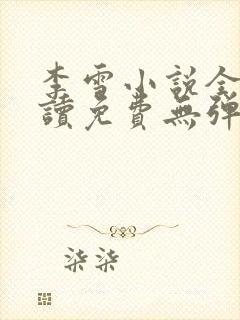 李雪小説全
讀免費無彈
柒柒